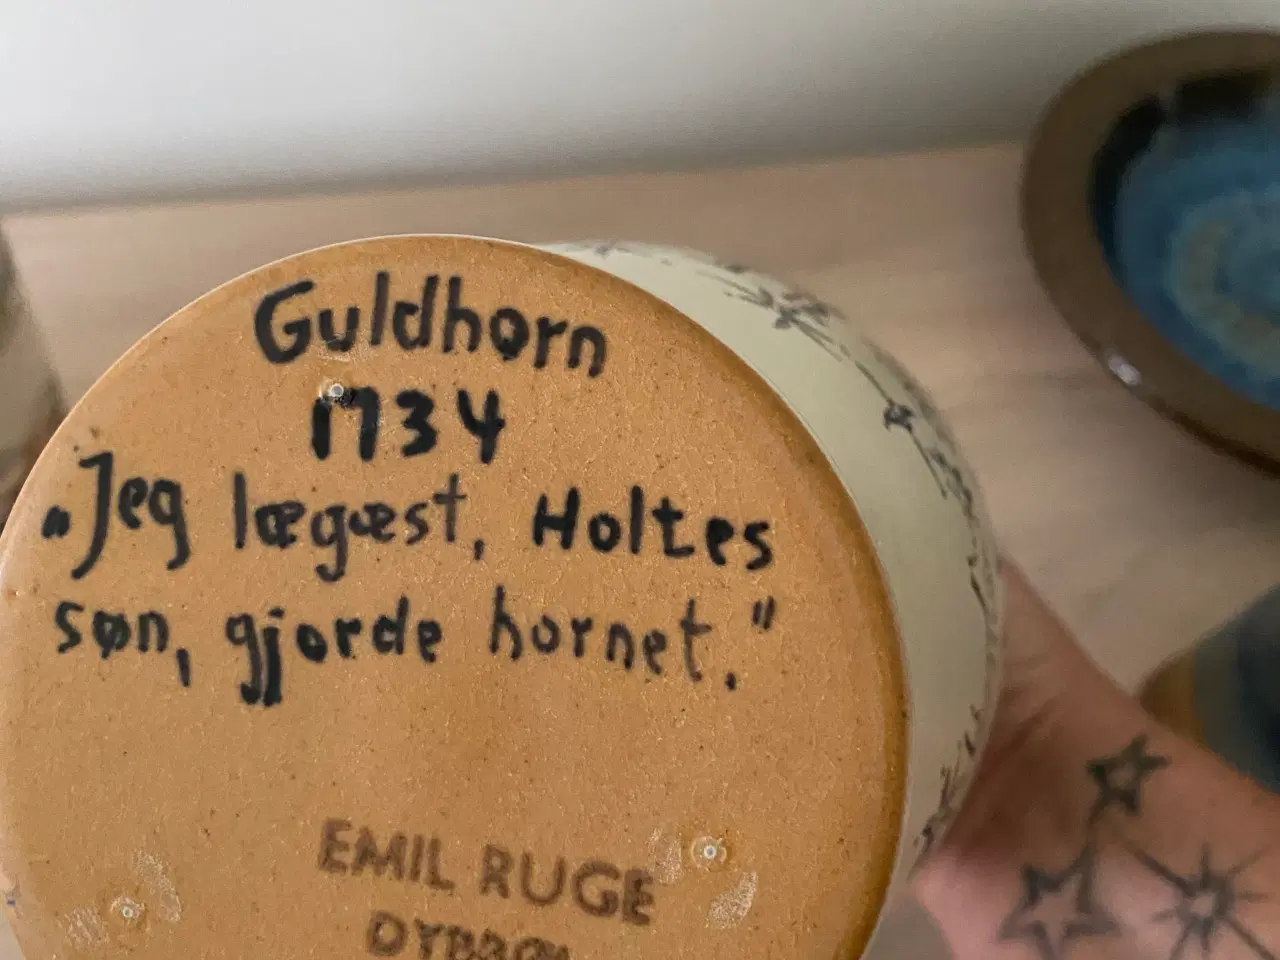 Guldhorn
1734
„Jeg lægæst, Holtes
søn, gjorde hornet."
EMIL RUGE